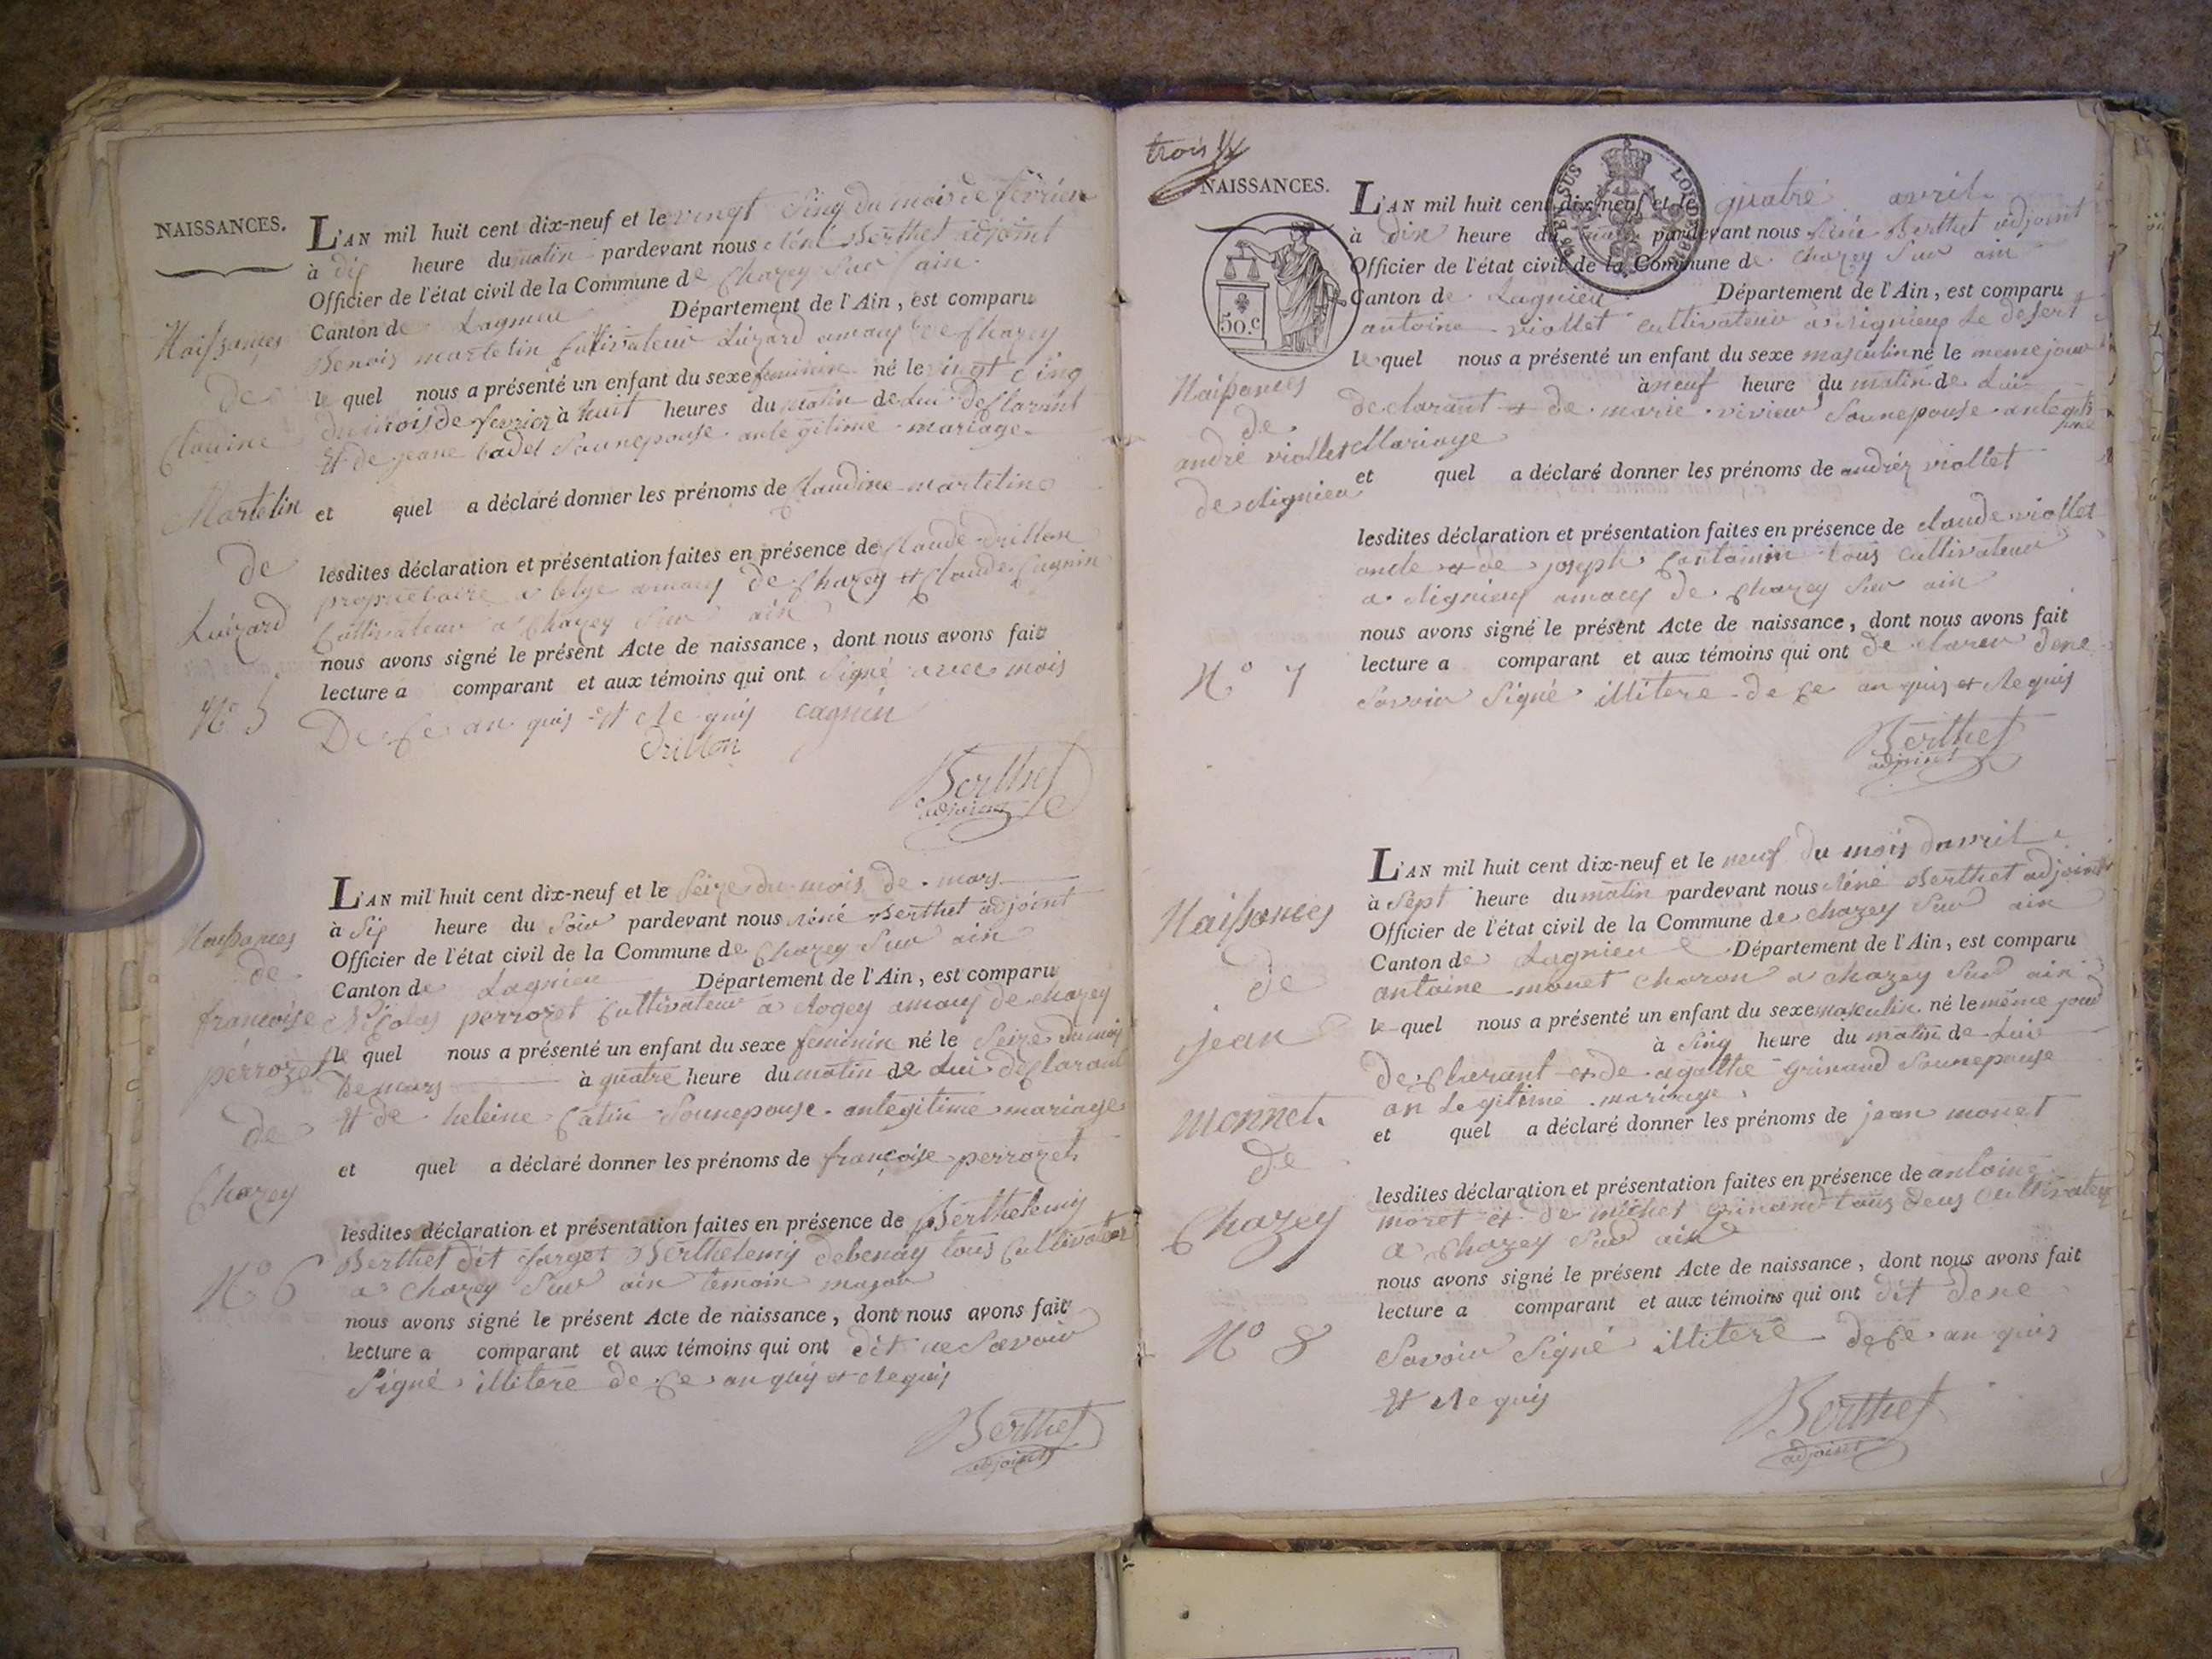 NAISSANCES.
L'AN mil huit cent dix-neuf et le vingt Sinq du mois de fevrier
à dix heure du matin pardevant nous Réné Berthet adjoint
Officier de l'état civil de la Commune de Chazey Sur ain
Canton de Lagnieu Département de l'Ain, est comparu
Benois martelin Cultivateur a Luizard amaux de Chazey
lequel nous a présenté un enfant du sexe feminin né le vingt Cinq
du mois de fevrier à huit heures du matin de Lui declarant
Et de jeane badel Sounepouse antegitime mariage
et quel a déclaré donner les prénoms de Claudine martelin
lesdites déclaration et présentation faites en présence de Claude Drillon
proprietaire a amaux de Chazey et Claude Cagnin
Cultivateur a Chazey Sur ain
nous avons signé le présent Acte de naissance, dont nous avons fait
lecture a comparant et aux témoins qui ont Signé avec mois
De Ce an quis Et Re quis cagnin
Drillon
Berthet
adjoint
Naissances
de
Claudine
Martelin
de
Luizard
N° 5
L'AN mil huit cent dix-neuf et le Seize du mois de mars
à Six heure du Soir pardevant nous réné Berthet adjoint
Officier de l'état civil de la Commune de Chazey Sur ain
Canton de Lagnieu Département de l'Ain, est comparu
Nicolas perrozet Cultivateur a Rogey amaux de chazey
le quel nous a présenté un enfant du sexe feminin né le Seize du mois
de mars à quatre heure du matin de Lui declarant
Et de heleine Catin Sounepouse antegitime mariage
et quel a déclaré donner les prénoms de françoise perrozet
lesdites déclaration et présentation faites en présence de Berthelemy
Berthet dit farget Berthelemy debenay tous Cultivateur
a Chazey Sur ain temoin majour
nous avons signé le présent Acte de naissance, dont nous avons fait
lecture a comparant et aux témoins qui ont dit ne Savoir
Signé illitere de Ce an quis et Requis
Berthet
adjoint
Naissances
de
françoise
perrozet
de
Chazey
N° 6
trois
NAISSANCES.
50.c
L'AN mil huit cent dix-neuf et le quatre avril
à dix heure du matin pardevant nous Réné Berthet adjoint
Officier de l'état civil de la Commune de Chazey Sur ain
Canton de Lagnieu Département de l'Ain, est comparu
antoine viollet cultivateur a Rignieux Le desert
lequel nous a présenté un enfant du sexe masculin né le meme jour
à neuf heure du matin de Lui
declarant et de marie vivier Sounepouse antegiti
me
Mariage
et quel a déclaré donner les prénoms de andréz viollet
lesdites déclaration et présentation faites en présence de claude viollet
oncle et de joseph Cantamin tous Cultivateur
a Rignieux amaux de Chazey Sur ain
nous avons signé le présent Acte de naissance, dont nous avons fait
lecture a comparant et aux témoins qui ont de clarer dene
Savoir Signé illitere de Ce an quis et Requis
Berthet
adjoint
Naissances
de
andré viollet
de Rignieu
N° 7
L'AN mil huit cent dix-neuf et le neuf du mois davril
à Sept heure du matin pardevant nous Réné Berthet adjoint
Officier de l'état civil de la Commune de Chazey Sur ain
Canton de Lagnieu Département de l'Ain, est comparu
antoine monet charon a chazey Sur ain
le quel nous a présenté un enfant du sexe masculin né le même jour
à Sinq heure du matin de Lui
de Clarant et de agatthe Grinand Sounepouse
an Legitime mariage
et quel a déclaré donner les prénoms de jean monet
lesdites déclaration et présentation faites en présence de antoine
moret et de michet grinand tous deux Cultivateur
a Chazey Sur ain
nous avons signé le présent Acte de naissance, dont nous avons fait
lecture a comparant et aux témoins qui ont dit dene
Savoir Signé illitere de Ce an quis
Et Re quis
Berthet
adjoint
Naissances
de
jean
monnet
de
Chazey
N° 8